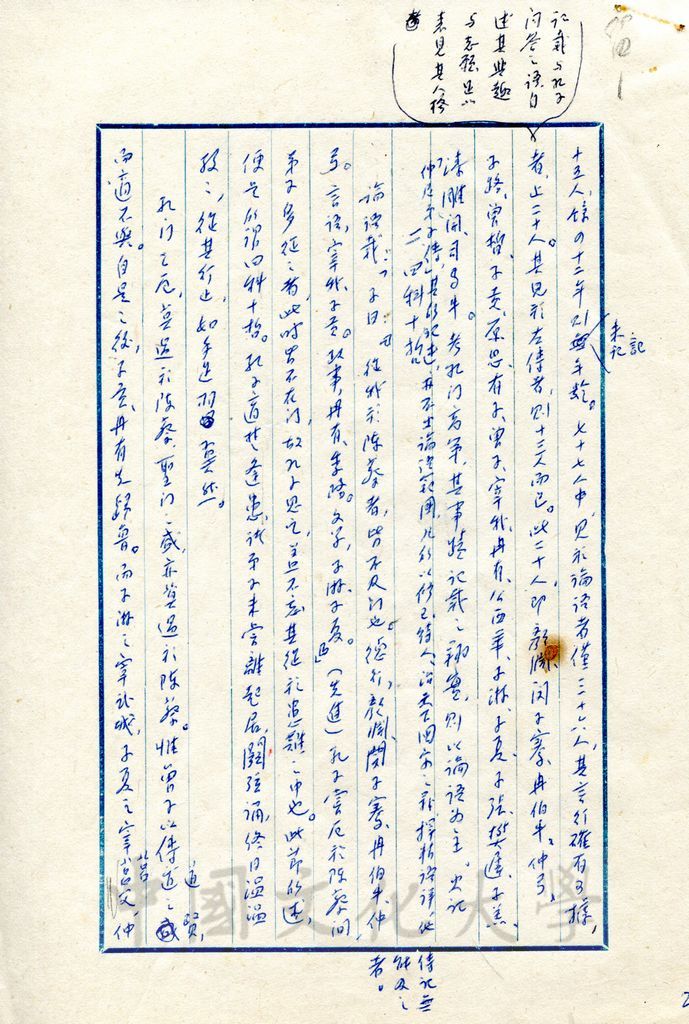 記載與孔子
問答之語，自
述其興趣
與志願，足以
表見其人格
者
十五人，餘四十二年則無年齡。七十七人中，見於論語者僅二十六人，其言行確有可據，
未記
記
者，止二十人。其見於左傳者，則十三人而已。此二十人，即顏淵、閔子騫、冉伯牛、仲弓、
子路、曾晳、子貢、原思、有子、曾子、宰我、冉有、公西華、子游、子夏、子張、樊遲、子羔、
漆雕開、司馬牛。考孔門高弟，其事蹟記載之翔實，則以論語為主。史記
仲尼弟子傳，其所記述，再不出論語範圍，凡所以修己待人，治天下國家之
傳記無
能及之
者。
二、四科十哲
論語載：「子曰：從我於陳蔡者，皆不及門也。德行，顏淵、閔子騫、冉伯牛、仲
弓。言語，宰我、子貢。政事，冉有、季路。文學，子游、子夏。」（先進）孔子嘗厄於陳蔡間
弟子多從之者，此時皆不在門，故孔子思之，蓋不忘其從於患難之中也。此節所述，
便是所謂四科十哲。孔子適楚逢患，諸弟子未嘗離起居，關弦誦，終日溫溫
致之，從其行止，如手足羽翼然。
孔門之厄，莫過於陳蔡，聖門之盛，亦莫過於陳蔡。惟曾子以傳道之
道賢，
而適不與。自是之後，子貢、冉有先歸魯。而子游之宰武城，子夏之宰莒父，仲
莒
中國文化大學
2